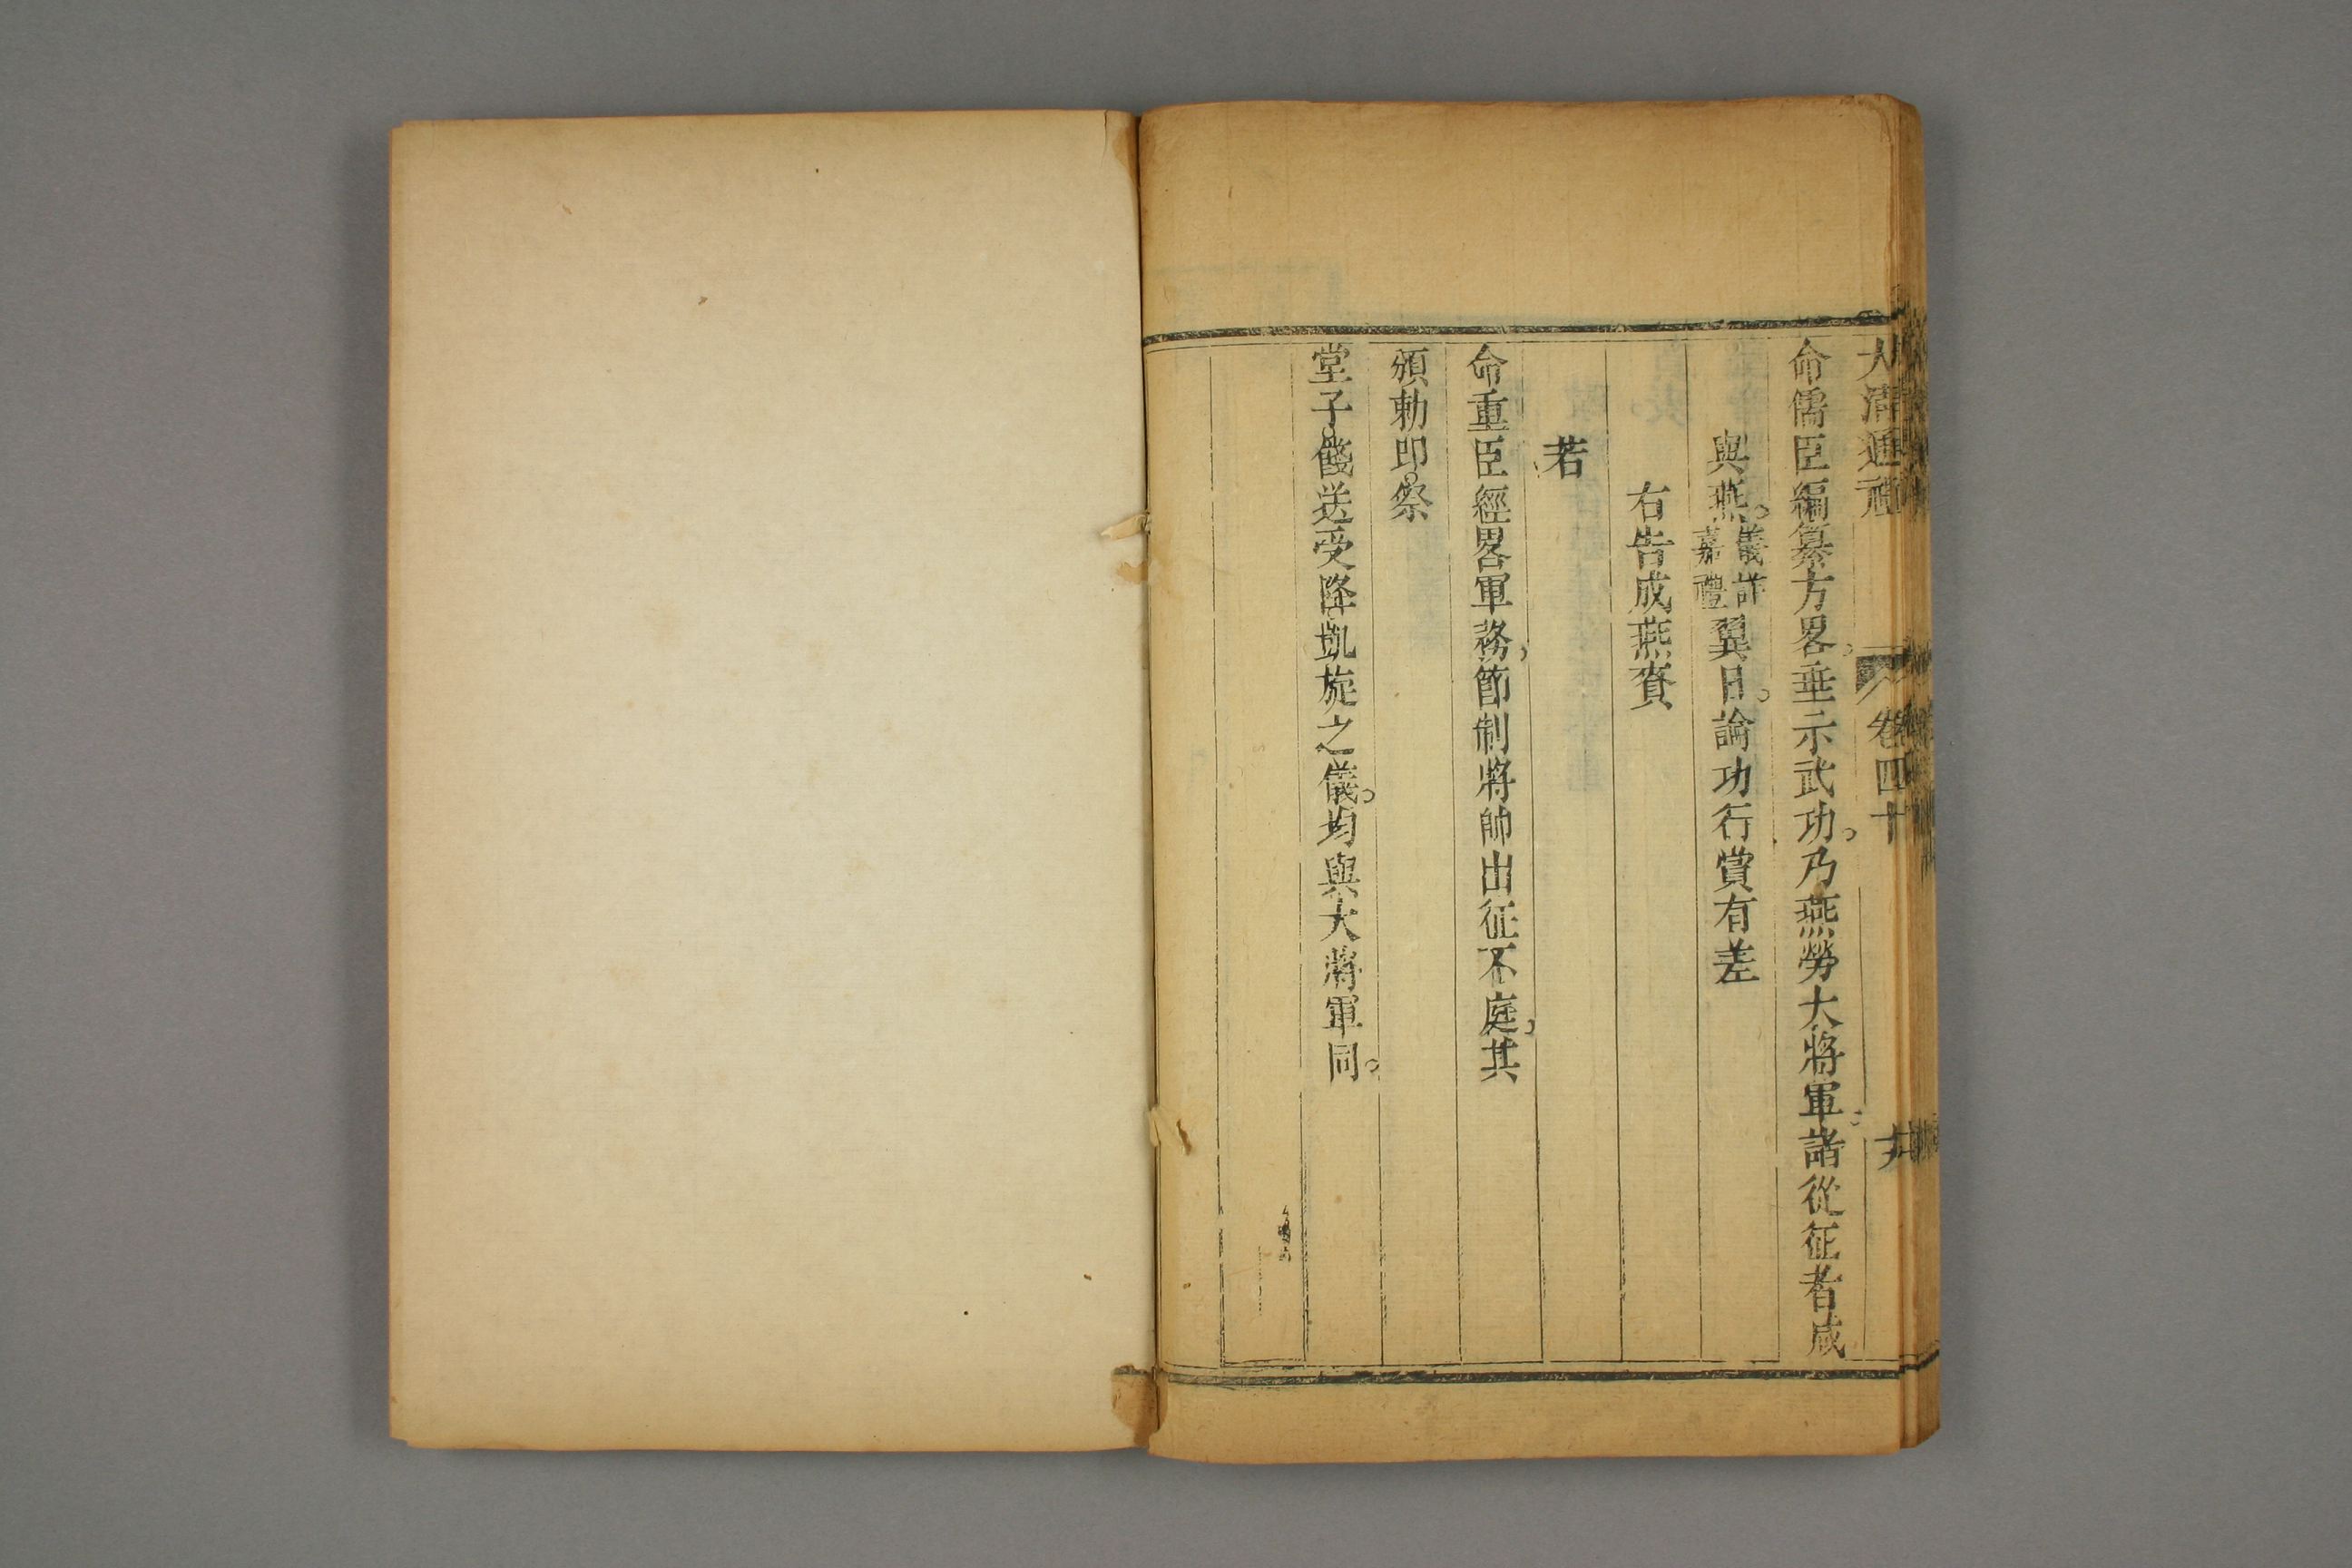 大清通禮 卷四十
命儒臣編纂方畧。垂示武功。乃燕勞大將軍。諸從征者咸
與燕。儀詳嘉禮翼日。論功行賞有差
右告成燕賚
若
命重臣經畧軍務。節制將帥出征不庭。其
頒勅印。祭
堂子。餞送受降。凱旋之儀。均與大將軍同。